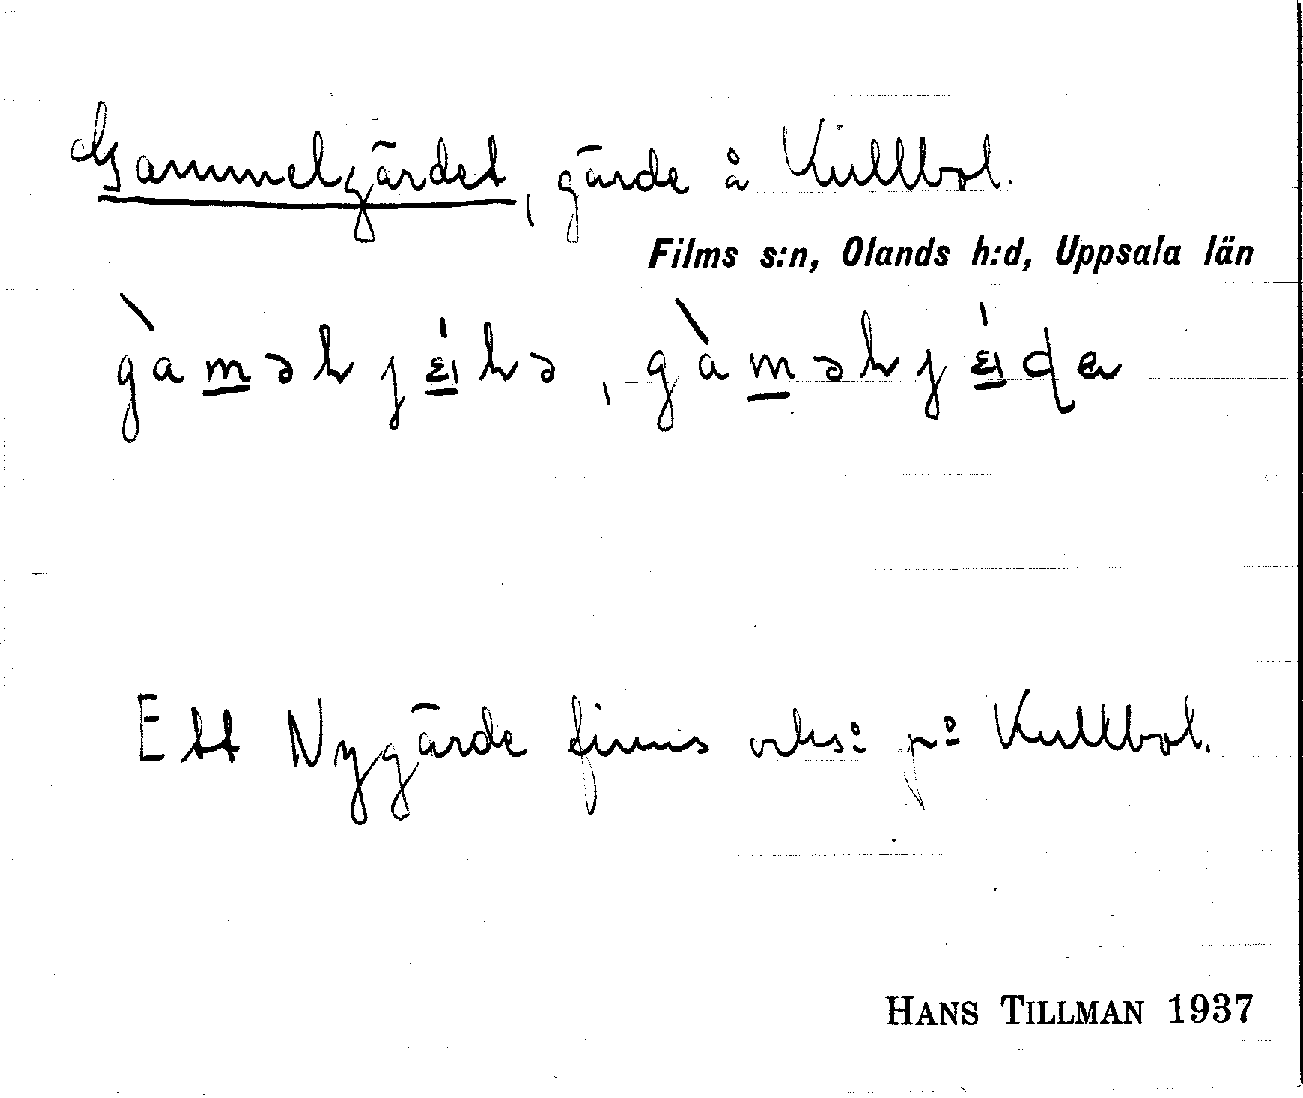 Gammelgärdet, gärde å Kullbol.
Films s:n, Olands h:d, Uppsala län
Ett Nygärde finns också på Kullbol.
HANS TILLMAN 1937